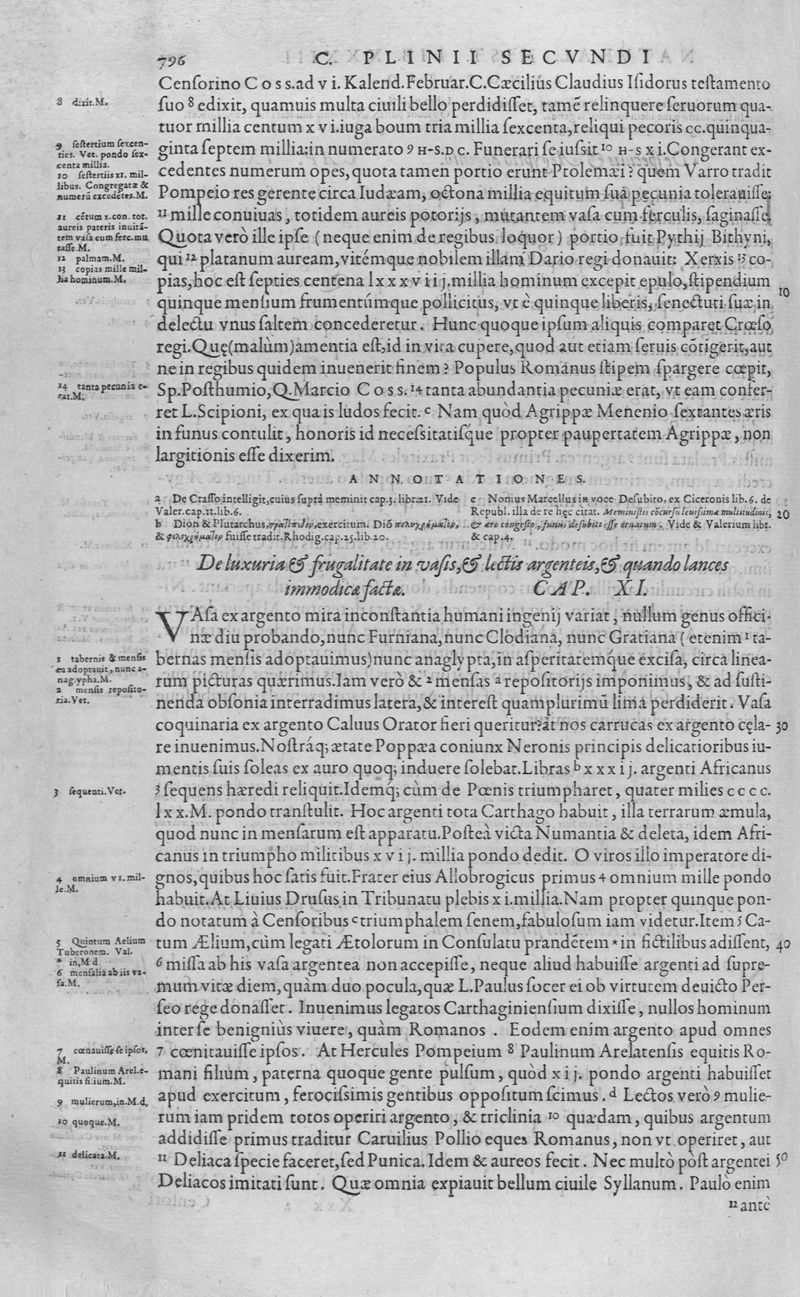 796
C. PLINII SECVNDI
Censorino C o s s. ad v i. Kalend. Februar. C. Cæcilius Claudius Isidorus testamento
suo 8 edixit, quamuis multa ciuili bello perdidisset, tamẽ relinquere seruorum qua-
tuor millia centum x v i. iuga boum tria millia sexcenta, reliqui pecoris cc. quinqua-
ginta septem millia: in numerato 9 H-S. D C. Funerari se iussit 10 H-S x i. Congerant ex-
cedentes numerum opes, quota tamen portio erunt Ptolemæi? quem Varro tradit
Pompeio res gerente circa Iudæam, octona millia equitum sua pecunia tolerauisse;
11 mille conuiuas, totidem aureis potorijs, mutantem vasa cum ferculis, saginasse.
Quota verò ille ipse (neque enim de regibus loquor) portio fuit Pythij Bithyni,
qui 12 platanum auream, vitémque nobilem illam Dario regi donauit: Xerxis 13 co-
pias, hoc est septies centena l x x x v i i j. millia hominum excepit epulo, stipendium
quinque mensium frumentúmque pollicitus, vt è quinque liberis, senectuti suæ in
delectu vnus saltem concederetur. Hunc quoque ipsum aliquis comparet Crœso
regi. Quę (malùm) amentia est, id in vita cupere, quod aut etiam seruis cõtigerit, aut
ne in regibus quidem inuenerit finem? Populus Romanus stipem spargere cœpit,
Sp. Posthumio, Q. Marcio C o s s. 14 tanta abundantia pecuniæ erat, vt eam confer-
ret L. Scipioni, ex qua is ludos fecit. c Nam quòd Agrippæ Menenio sextantes æris
in funus contulit, honoris id necessitatisque propter paupertatem Agrippæ, non
largitionis esse dixerim.
8 dixit. M.
9 sestertium sexcen-
ties. Vet. pondo sex-
centa millia.
10 sestertiis xi. mil-
libus. Congregatæ &
numerũ excedẽtes. M.
11 cẽtum x. con. tot.
aureis pateris inuitã-
tem vasa cum ferc. mu
tasse. M.
12 palmam. M.
13 copias mille mil-
lia hominum. M.
14 tanta pecunia e-
rat. M.
10
ANNOTATIONES.
a De Crasso intelligit, cuius suprà meminit cap. 3. libr. 21. Vide
Valer. cap. 21. lib. 6.
b Dion & Plutarchus, exercitum. Diõ
& fuisse tradit. Rhodig. cap. 25. lib. 20.
c Nonius Marcellus in voce Desubito, ex Ciceronis lib. 6. de
Republ. illa de re hęc citat. Meminisse cõcursũ leuissima multitudinis,
& ære congesto, funus desubito esse ornatum. Vide & Valerium libr.
& cap. 4.
20
De luxuria & frugalitate in vasis, & lectis argenteis, & quando lances
immodicæ factæ. CAP. XI.
VAsa ex argento mira inconstantia humani ingenij variat, nullum genus offici-
næ diu probando, nunc Furniana, nunc Clodiana, nunc Gratiana (etenim 1 ta-
bernas mensis adoptauimus) nunc anaglypta, in asperitatemque excisa, circa linea-
rum picturas quærimus. Iam verò & 2 mensas a repositorijs imponimus, & ad susti-
nenda obsonia interradimus latera, & interest quamplurimũ lima perdiderit. Vasa
coquinaria ex argento Caluus Orator fieri queritur: át nos carrucas ex argento cęla-
re inuenimus. Nostráq; ætate Poppæa coniunx Neronis principis delicatioribus iu-
mentis suis soleas ex auro quoq; induere solebat. Libras b x x x i j. argenti Africanus
3 sequens hæredi reliquit. Idemq; cùm de Pœnis triumpharet, quater milies c c c c.
l x x. M. pondo transtulit. Hoc argenti tota Carthago habuit, illa terrarum æmula,
quod nunc in mensarum est apparatu. Posteà victa Numantia & deleta, idem Afri-
canus in triumpho militibus x v i j. millia pondo dedit. O viros illo imperatore di-
gnos, quibus hoc satis fuit. Frater eius Allobrogicus primus 4 omnium mille pondo
habuit. At Liuius Drusus in Tribunatu plebis x i. millia. Nam propter quinque pon-
do notatum à Censoribus c triumphalem senem, fabulosum iam videtur. Item 5 Ca-
tum Ælium, cùm legati Ætolorum in Consulatu prandẽtem * in fictilibus adissent,
6 missa ab his vasa argentea non accepisse, neque aliud habuisse argenti ad supre-
mum vitæ diem, quàm duo pocula, quæ L. Paulus socer ei ob virtutem deuicto Per-
seo rege donasset. Inuenimus legatos Carthaginiensium dixisse, nullos hominum
inter se benigniùs viuere, quàm Romanos. Eodem enim argento apud omnes
7 cœnitauisse ipsos. At Hercules Pompeium 8 Paulinum Arelatensis equitis Ro-
mani filium, paterna quoque gente pulsum, quòd x i j. pondo argenti habuisset
apud exercitum, ferocissimis gentibus oppositum scimus. d Lectos verò 9 mulie-
rum iam pridem totos operiri argento, & triclinia 10 quædam, quibus argentum
addidisse primus traditur Caruilius Pollio eques Romanus, non vt operiret, aut
11 Deliaca specie faceret, sed Punica. Idem & aureos fecit. Nec multò pòst argentei
Deliacos imitati sunt. Quæ omnia expiauit bellum ciuile Syllanum. Paulò enim
12 antè
1 tabernis & mensis
ea adoptauit, nunc a-
nagypha. M.
2 mensis reposito-
ria. Vet.
3 sequenti. Vet.
4 omnium vi. mil-
le. M.
5 Quintum Aelium
Tuberonem. Val.
* in, M d
6 mensalia ab iis va-
sa. M.
7 cœnauisse se ipsos,
M.
8 Paulinum Arel. e-
quitis filium. M.
9 mulierum, in. M. d.
10 quoque. M.
11 delicata. M.
30
40
50